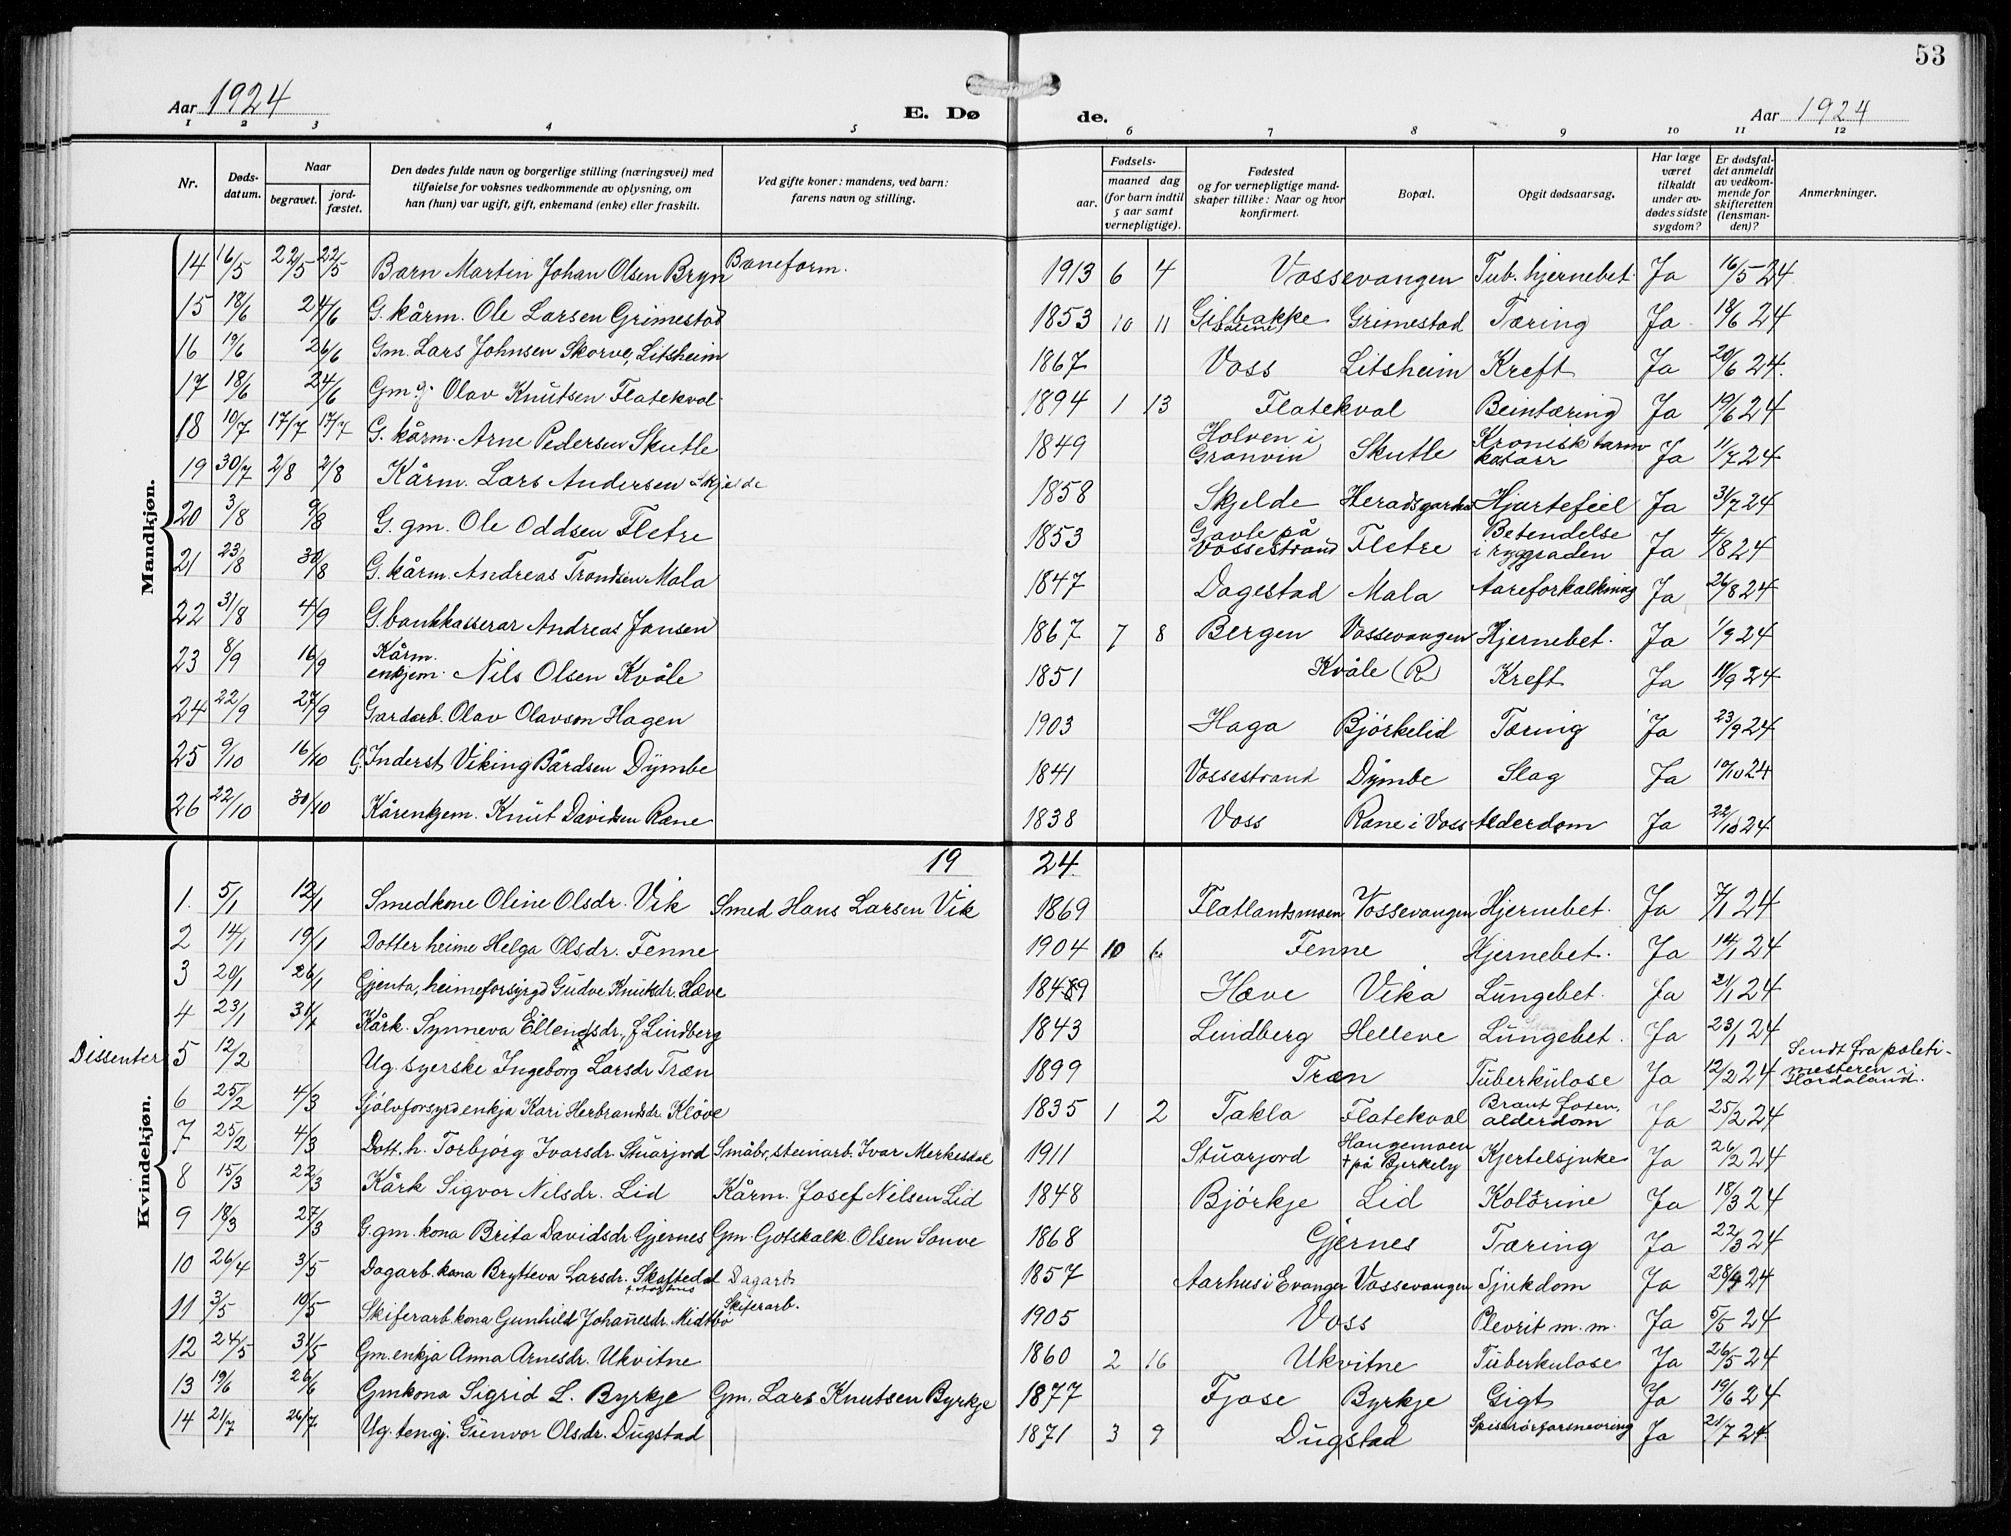 53
Aar 1924
E. Dø
de.
Aar 1924
1 2 3 4 5 6 7 8 9 10 11 12
Nr.
Døds-
datum.
Naar
begravet.
jord-
fæstet.
Den dødes fulde navn og borgerlige stilling (næringsvei) med
tilføielse for voksnes vedkommende av oplysning, om
han (hun) var ugift, gift, enkemand (enke) eller fraskilt.
Ved gifte koner: mandens, ved barn:
farens navn og stilling.
Fødsels-
aar.
maaned dag
(for barn indtil
5 aar samt
vernepligtige).
Fødested
og for vernepligtige mand-
skaper tillike: Naar og hvor
konfirmert.
Bopæl.
Opgit dødsaarsag.
Har læge
været
tilkaldt
under av-
dødes sidste
sygdom?
Er dødsfal-
det anmeldt
av vedkom-
mende for
skifteretten
(lensman-
den)?
Anmerkninger.
Mandkjøn.
14 16/5 22/5 22/5 Barn Martin Johan Olsen Bryn Baneform. 1913 6 4 Vossevangen Tub. hjernebet. Ja 16/5 24
15 18/6 24/6 G. kårm. Ole Larsen Grimestad 1853 10 11 Gilbakke Grimestad Tæring Ja 18/6 24
16 19/6 26/6 Gm. Lars Johnsen Skorve, Litsheim 1867 Voss Litsheim Kreft Ja 20/6 24.
17 18/6 24/6 Gm g. Olav Knutsen Flatekval 1894 1 13 Flatekval Beintæring Ja 19/6 24
18 10/7 17/7 17/7 G. kårm. Arne Pedersen Skutle 1849 Holven i Granvin Skutle Kronisk tarm katarr Ja 11/7 24
19 30/7 2/8 2/8 Kårm. Lars Andersen Skjelde 1858 Skjelde Heradsgarden Hjartefeil Ja 31/7 24
20 3/8 9/8 G. gm. Ole Oddsen Fletre 1853 Gavle på Vossestrand Fletre Betendelse i ryggraden Ja 4/8 24
21 23/8 30/8 G. kårm. Andreas Trondsen Mala 1847 Dagestad Mala Aareforkalkning Ja 26/8 24
22 31/8 4/9 G. bankkasserar Andreas Jansen 1867 7 8 Bergen Vossevangen Hjernebet. Ja 1/9 24
23 8/9 16/9 Kårm. enkjem. Nils Olsen Kvåle 1851 Kvåle (R) Kreft Ja 11/9 24
24 22/9 27/9 Gardarb. Olav Olavson Hagen 1903 Haga Bjørkelid Tæring Ja 23/9 24
25 9/10 16/10 G. Inderst Viking Bårdsen Dymbe 1841 Vossestrand Dymbe Slag Ja 10/10 24
26 22/10 30/10 Kårenkjem. Knut Davidsen Rene 1838 Voss Rene i Voss Alderdom Ja 22/10 24
19 24.
Kvindekjøn.
1. 5/1 12/1 Smedkone Oline Olsdr. Vik Smed Hans Larsen Vik 1869 Flatlandsmoen Vossevangen Hjernebet. Ja 7/1 24
2 14/1 19/1 Dotter heime Helga Olsdr. Fenne 1904 10 6 Fenne Hjernebet. Ja 14/1 24
3 20/1 26/1 Gjenta, heimeforsyrgd Gudve Knutsdr. Hæve 1849 Hæve Vika Lungebet. Ja 21/1 24
4 23/1 31/1 Kårk. Synneva Ellendsdr., f. Lindberg 1843 Lindberg Helleve Lungebet. Ja 23/1 24
Dissenter 5 12/2 Ug. syerske Ingeborg Larsdr Træn 1899 Træn Tuberkulose Ja 12/2 24 Sendt fra politi-
mesteren i
Hordaland.
6 25/2 4/3 Sjølvforsyrd enkja Kari Herbrandsdr. Kløve 1835 1 2 Takla Flatekval Braut foten. alderdom Ja 25/2 24
7 25/2 4/3 Dott. h. Torbjørg Ivarsdr. Stuarjord Småbr., steinarb. Ivar Merkesdal 1911 Stuarjord Haugamoen + på Bjerkely Kjertelsjuke Ja 26/2 24
8 15/3 22/3 Kårk Sigvor Nilsdr. Lid Kårm. Josef Nilsen Lid 1848 Bjørkje Lid Kolorine Ja 18/3 24
9 18/3 27/3 G. gm. kona Brita Davidsdr. Gjernes Gm. Gotskalk Olsen Sonve 1868 Gjernes Tæring Ja 22/3 24
10 26/4 3/5 Dagarb. kona Brytteva Larsdr. Skaftedal Dagarb 1857 Aarhus i Evanger Vossevangen Sjukdom Ja 28/4 24
11 3/5 10/5 Skiferarb. kona Gunhild Johannesdr. Midtbø Skiferarb. 1905 Voss Plevrit m. m. Ja 5/5 24
12 24/5 31/5 Gm. enkja Anna Arnesdr. Ukvitne 1860 2 16 Ukvitne Tuberkulose Ja 26/5 24
13 19/6 26/6 Gmkona Sigrid L. Byrkje Gm. Lars Knutsen Byrkje 1877 Fjose Byrkje Gigt Ja 19/6 24
14 21/7 26/7 Ug. tenj. Gunvor Olsdr. Dugstad 1871 3 9 Dugstad Spiserørforsnevring Ja 21/7 24